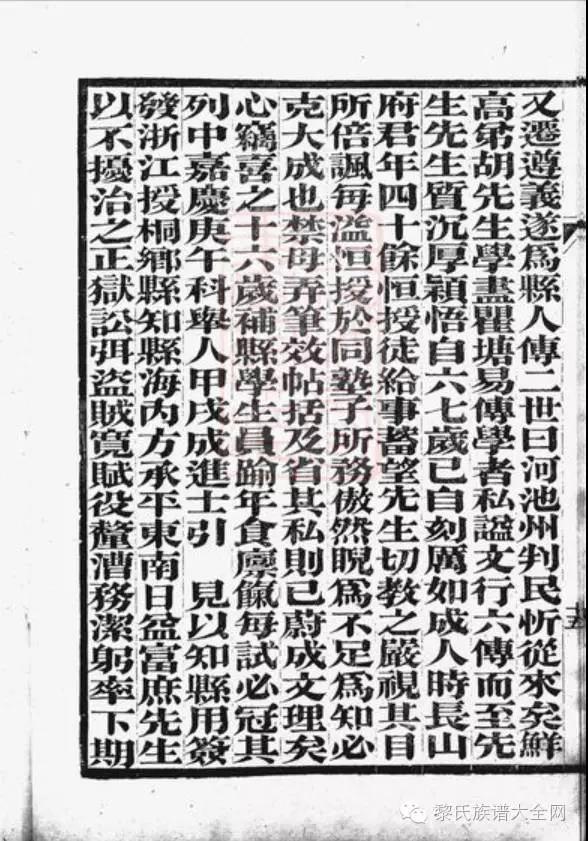 又遷遵義遂爲縣人傳二世曰河池州判民忻從來矣鮮
高弟胡先生學盡瞿塘易傳學者私謚文行六傳而至先
生先生質沉厚穎悟自六七歲已自刻厲如成人時長山
府君年四十餘恒授徒給事蓄望先生切教之嚴視其目
所倍諷每溢恒授於同塾子所務傲然睨爲不足爲知必
克大成也禁毋弄筆效帖括及省其私則已蔚成文理矣
心竊喜之十六歲補縣學生員踰年食廪餼每試必冠其
列中嘉慶庚午科舉人甲戌成進士引　見以知縣用簽
發浙江授桐鄉縣知縣海內方承平東南日益富庶先生
以不擾治之正獄訟弭盜賊寬賦役釐漕務潔躬率下期
黎氏族谱大全网